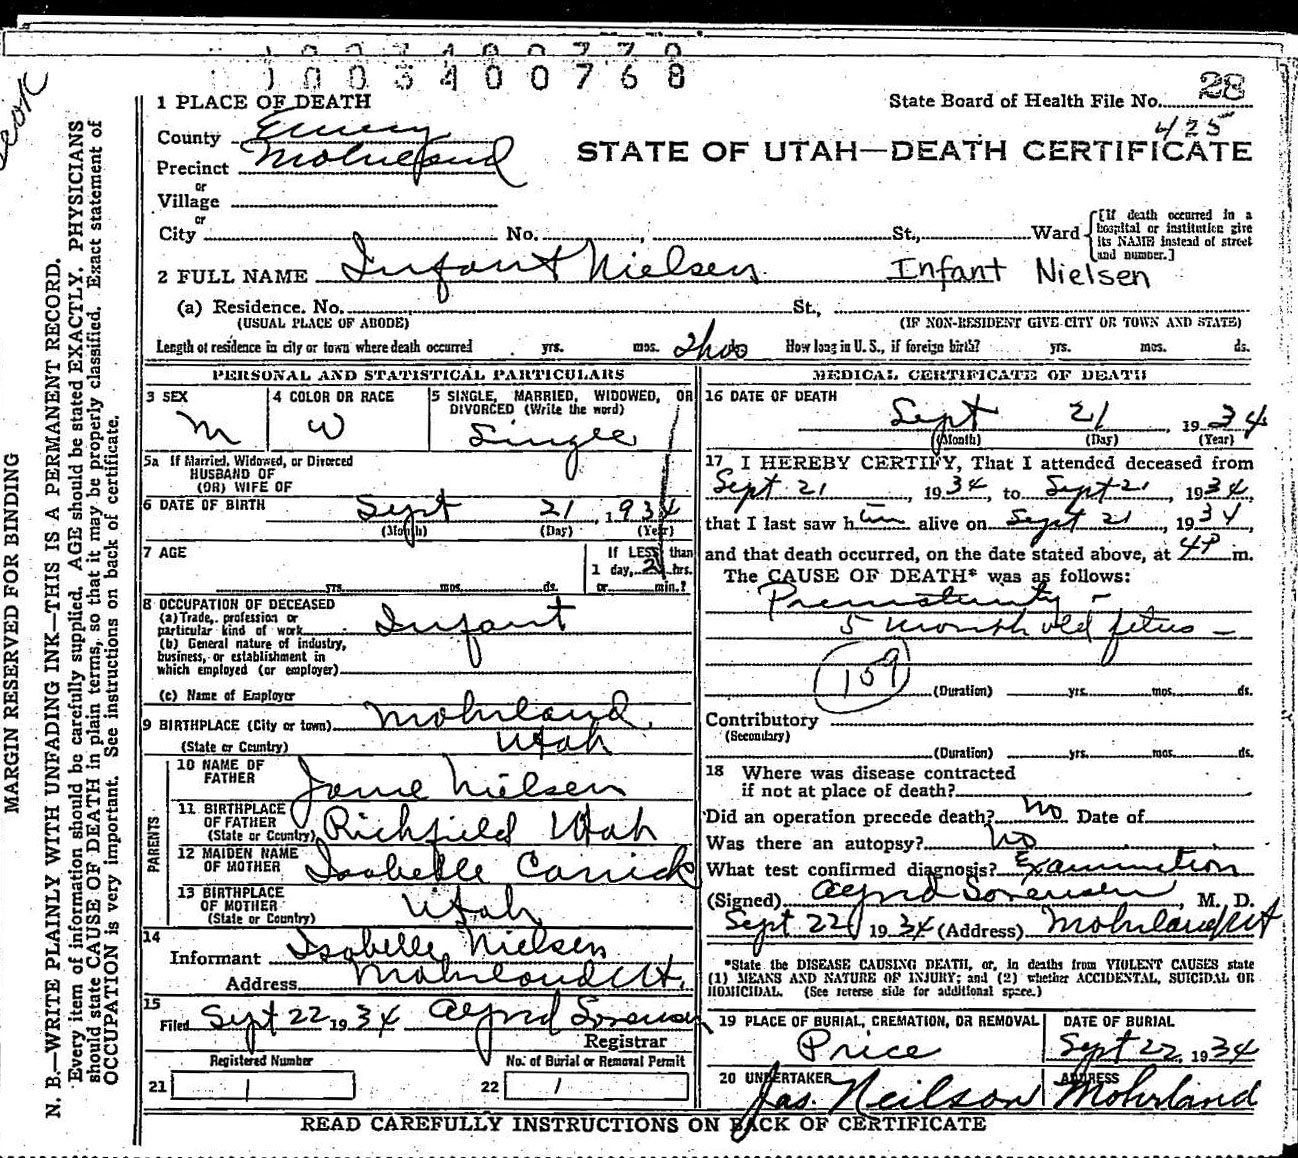 1003400768
28
1 PLACE OF DEATH
State Board of Health File No.
425
County Emery
STATE OF UTAH—DEATH CERTIFICATE
Precinct Mohrland
or
Village
or
City No. , St., Ward
[If death occurred in a hospital or institution give its NAME instead of street and number.]
2 FULL NAME Infant Nielsen Infant Nielsen
(a) Residence. No. St.,
(USUAL PLACE OF ABODE) (IF NON-RESIDENT GIVE CITY OR TOWN AND STATE)
Length of residence in city or town where death occurred yrs. mos. How long in U. S., if foreign birth? yrs. mos. ds.
PERSONAL AND STATISTICAL PARTICULARS
3 SEX
M
4 COLOR OR RACE
W
5 SINGLE, MARRIED, WIDOWED, OR DIVORCED (Write the word)
Single
5a If Married, Widowed, or Divorced
HUSBAND OF
(OR) WIFE OF
6 DATE OF BIRTH Sept 21 , 1934
(Month) (Day) (Year)
7 AGE
yrs. mos. ds.
If LESS than
1 day, 2 hrs.
or min.?
8 OCCUPATION OF DECEASED
(a) Trade, profession or
particular kind of work Infant
(b) General nature of industry,
business, or establishment in
which employed (or employer)
(c) Name of Employer
9 BIRTHPLACE (City or town) Mohrland,
(State or Country) Utah
PARENTS
10 NAME OF
FATHER Nielsen
11 BIRTHPLACE
OF FATHER
(State or Country) Richfield Utah
12 MAIDEN NAME
OF MOTHER Isabelle Carrick
13 BIRTHPLACE
OF MOTHER
(State or Country) Utah
14
Informant Isabelle Nielsen
Address Mohrland Ut.
15
Filed Sept 22 1934 Alfred Sorensen
Registrar
Registered Number No. of Burial or Removal Permit
21 1 22 1
MEDICAL CERTIFICATE OF DEATH
16 DATE OF DEATH
Sept 21 1934
(Month) (Day) (Year)
17 I HEREBY CERTIFY, That I attended deceased from
Sept 21 , 1934, to Sept 21 , 1934,
that I last saw him alive on Sept 21 , 1934,
and that death occurred, on the date stated above, at 4P m.
The CAUSE OF DEATH* was as follows:
Prematurity -
5 month old fetus -
159
(Duration) yrs. mos. ds.
Contributory
(Secondary)
(Duration) yrs. mos. ds.
18 Where was disease contracted
if not at place of death?
Did an operation precede death? no. Date of
Was there an autopsy? no
What test confirmed diagnosis? Examination
(Signed) Alfred Sorensen , M. D.
Sept 22, 1934 (Address) Mohrland Ut
*State the DISEASE CAUSING DEATH, or, in deaths from VIOLENT CAUSES state
(1) MEANS AND NATURE OF INJURY; and (2) whether ACCIDENTAL, SUICIDAL OR
HOMICIDAL. (See reverse side for additional space.)
19 PLACE OF BURIAL, CREMATION, OR REMOVAL
Price
DATE OF BURIAL
Sept 22, 1934
20 UNDERTAKER
Jas. Neilson
ADDRESS
Mohrland
READ CAREFULLY INSTRUCTIONS ON BACK OF CERTIFICATE
MARGIN RESERVED FOR BINDING
N. B.—WRITE PLAINLY WITH UNFADING INK—THIS IS A PERMANENT RECORD.
Every item of information should be carefully supplied. AGE should be stated EXACTLY. PHYSICIANS
should state CAUSE OF DEATH in plain terms, so that it may be properly classified. Exact statement of
OCCUPATION is very important. See instructions on back of certificate.